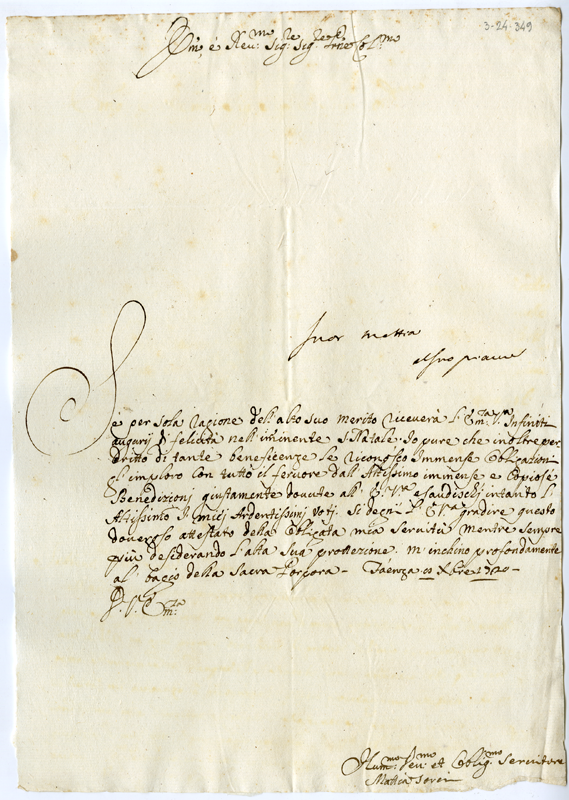 3-24-349
Em.o e Reu.mo Sig.re Sig.re P.rone Col.mo
Suor Mattia
Se per sola ragione dell alto suo merito riceuerà l'E.ma V.ra Infiniti
augurij di felicità nell'iminente S. Natale. Io pure che inoltre per
dritto di tante beneficenze le riconosco Immense Obligationi
gl'imploro con tutto il feruore dall'Altissimo immense e Copiose
Benedizioni giustamente douute all' E. V.ra esaudischi intanto l'
Altissimo I miei Ardentissimi Voti. Si degni l' E. V.ra gradire questo
doueroso attestato della Obligata mia seruitù mentre sempre
più desiderando l'alta Sua protezione. m'inchino profondamente
al bacio della Sacra Porpora - Faenza X.bre 1720 -
D. V. E.ma
Hum.mo Deu.mo et Oblig.mo Seruitore
Mattia